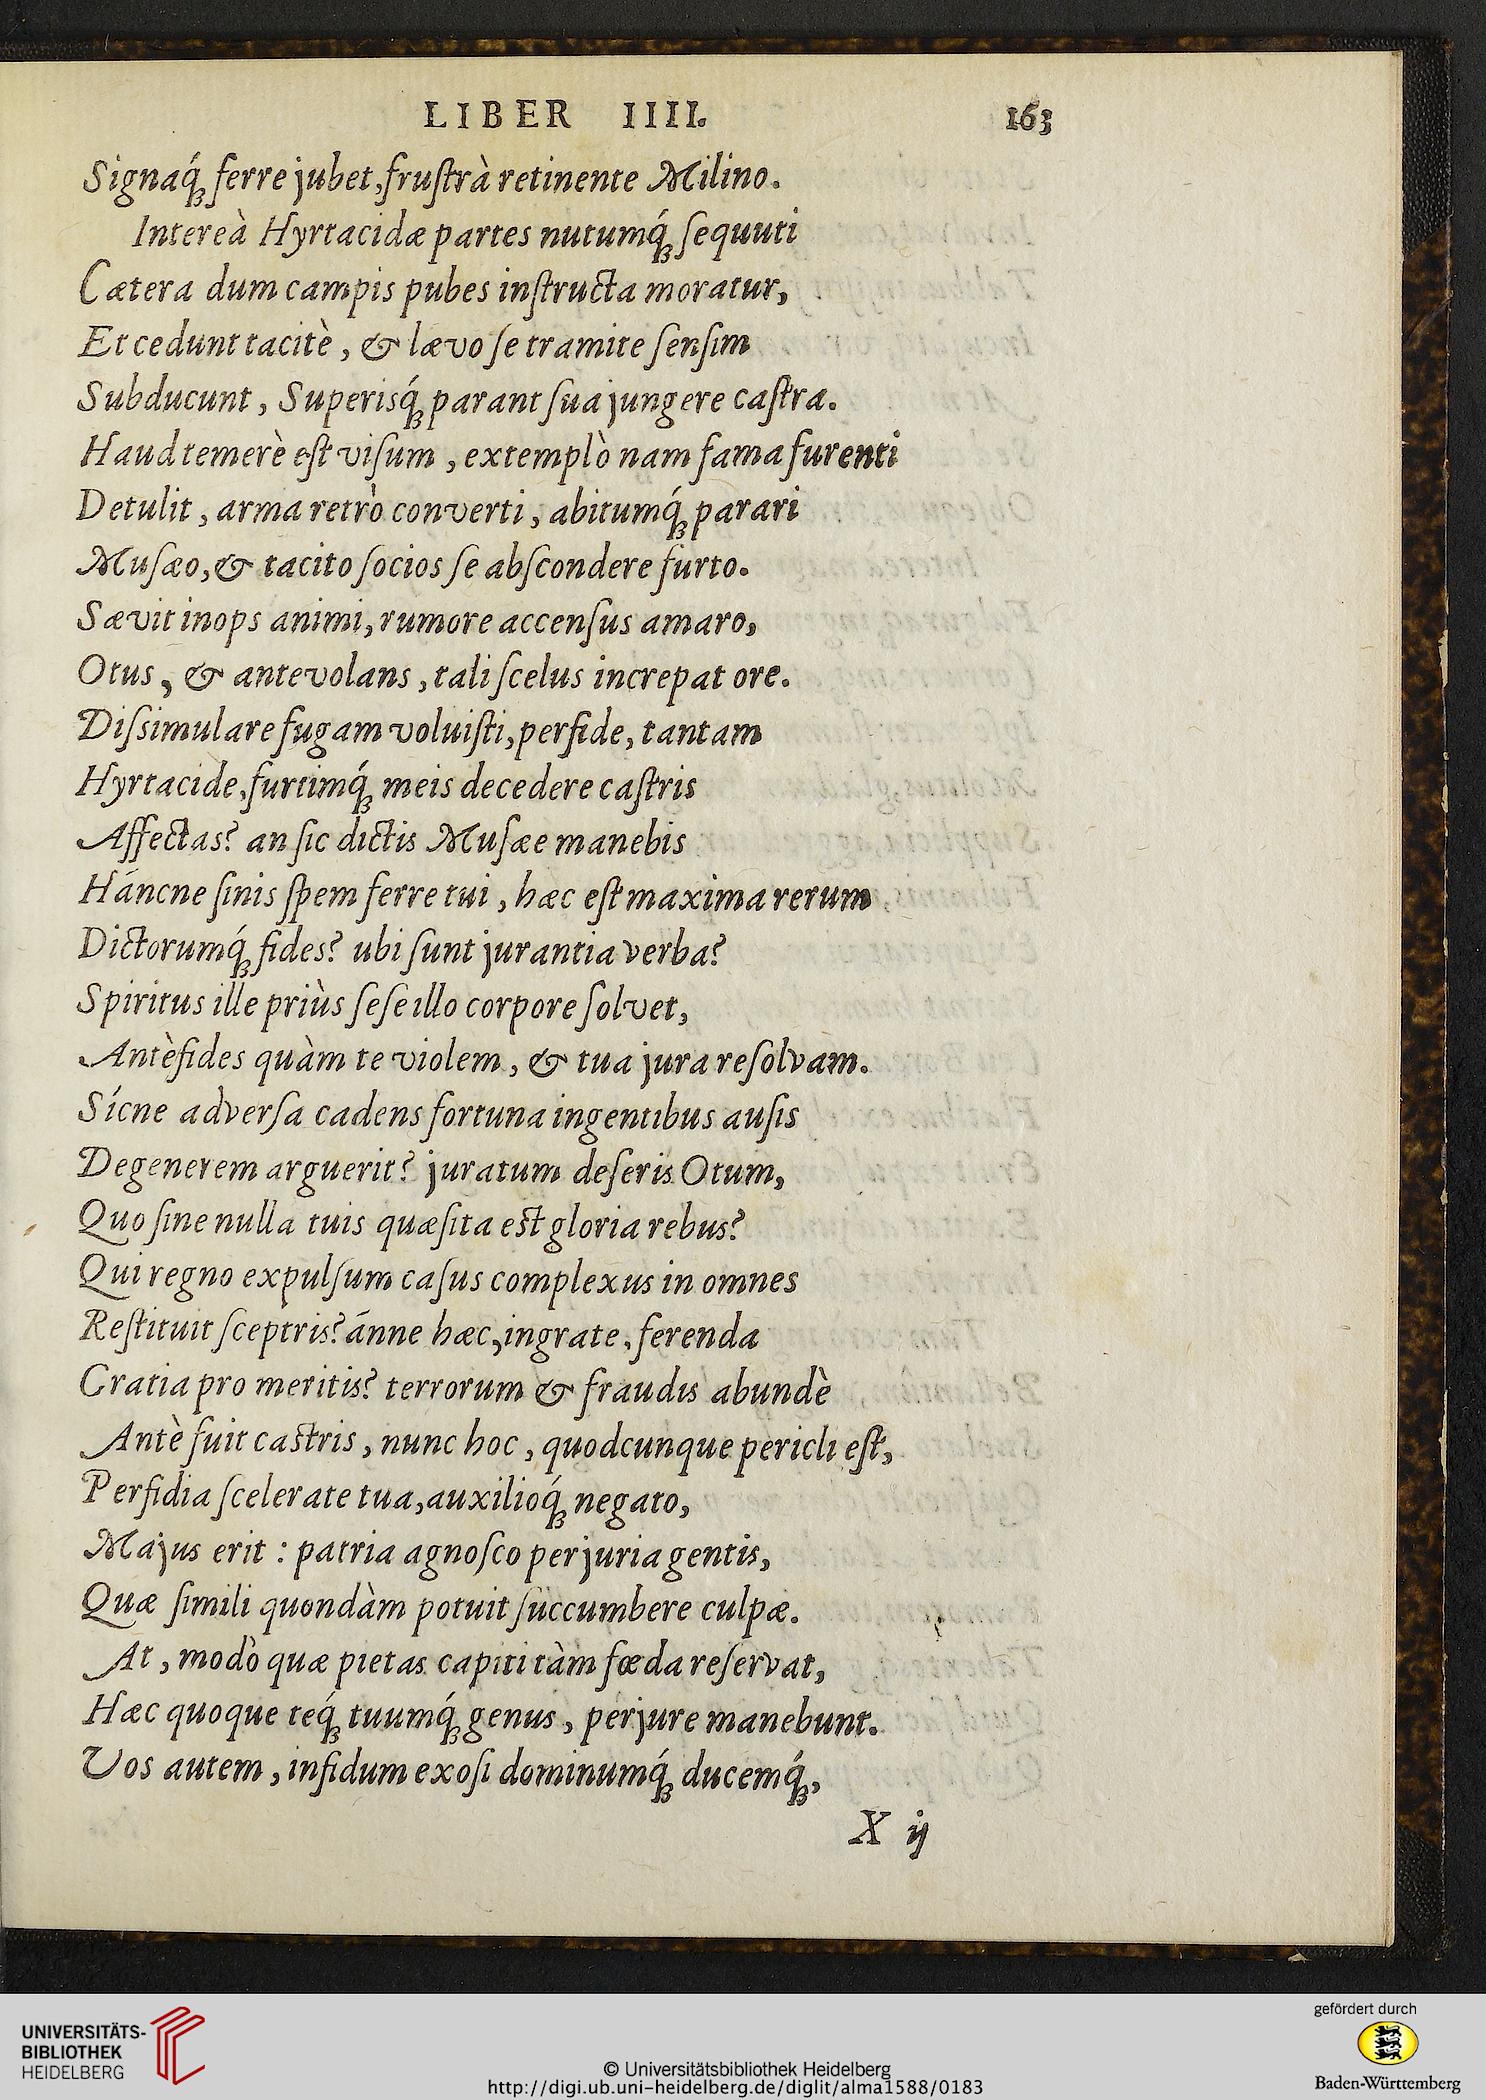 LIBER IIII. 163
Signaq́; ferre jubet, fruſtrà retinente Milino.
Intereà Hyrtacidæ partes nutumq́; ſequuti
Cætera dum campis pubes inſtructa moratur,
Et cedunt tacitè, & lævo ſe tramite ſenſim
Subducunt, Superisq́; parant ſua jungere caſtra.
Haud temerè eſt viſum, extemplò nam fama furenti
Detulit, arma retrò converti, abitumq́; parari
Muſæo, & tacito ſocios ſe abſcondere furto.
Sævit inops animi, rumore accenſus amaro,
Otus, & antevolans, tali ſcelus increpat ore.
Diſsimulare fugam voluiſti, perfide, tantam
Hyrtacide, furtimq́; meis decedere caſtris
Affectas? an ſic dictis Muſæe manebis
Háncne ſinis ſpem ferre tui, hæc eſt maxima rerum
Dictorumq́; fides? ubi ſunt jurantia verba?
Spiritus ille priùs ſeſe illo corpore ſolvet,
Antè fides quàm te violem, & tua jura reſolvam.
Sícne adverſa cadens fortuna ingentibus auſis
Degenerem arguerit? juratum deſeris Otum,
Quo ſine nulla tuis quæſita est gloria rebus?
Qui regno expulſum caſus complexus in omnes
Reſtituit ſceptris? ánne hæc, ingrate, ferenda
Gratia pro meritis? terrorum & fraudis abundè
Antè fuit castris, nunc hoc, quodcunque pericli eſt,
Perfidia ſcelerate tua, auxilioq́; negato,
Majus erit : patria agnoſco perjuria gentis,
Quæ ſimili quondàm potuit ſuccumbere culpæ.
At, modò quæ pietas capiti tàm fœda reſervat,
Hæc quoque teq́; tuumq́; genus, perjure manebunt.
Vos autem, infidum exoſi dominumq́; ducemq́;,
X ij
UNIVERSITÄTS-
BIBLIOTHEK
HEIDELBERG
© Universitätsbibliothek Heidelberg
http://digi.ub.uni-heidelberg.de/diglit/alma1588/0183
gefördert durch
Baden-Württemberg